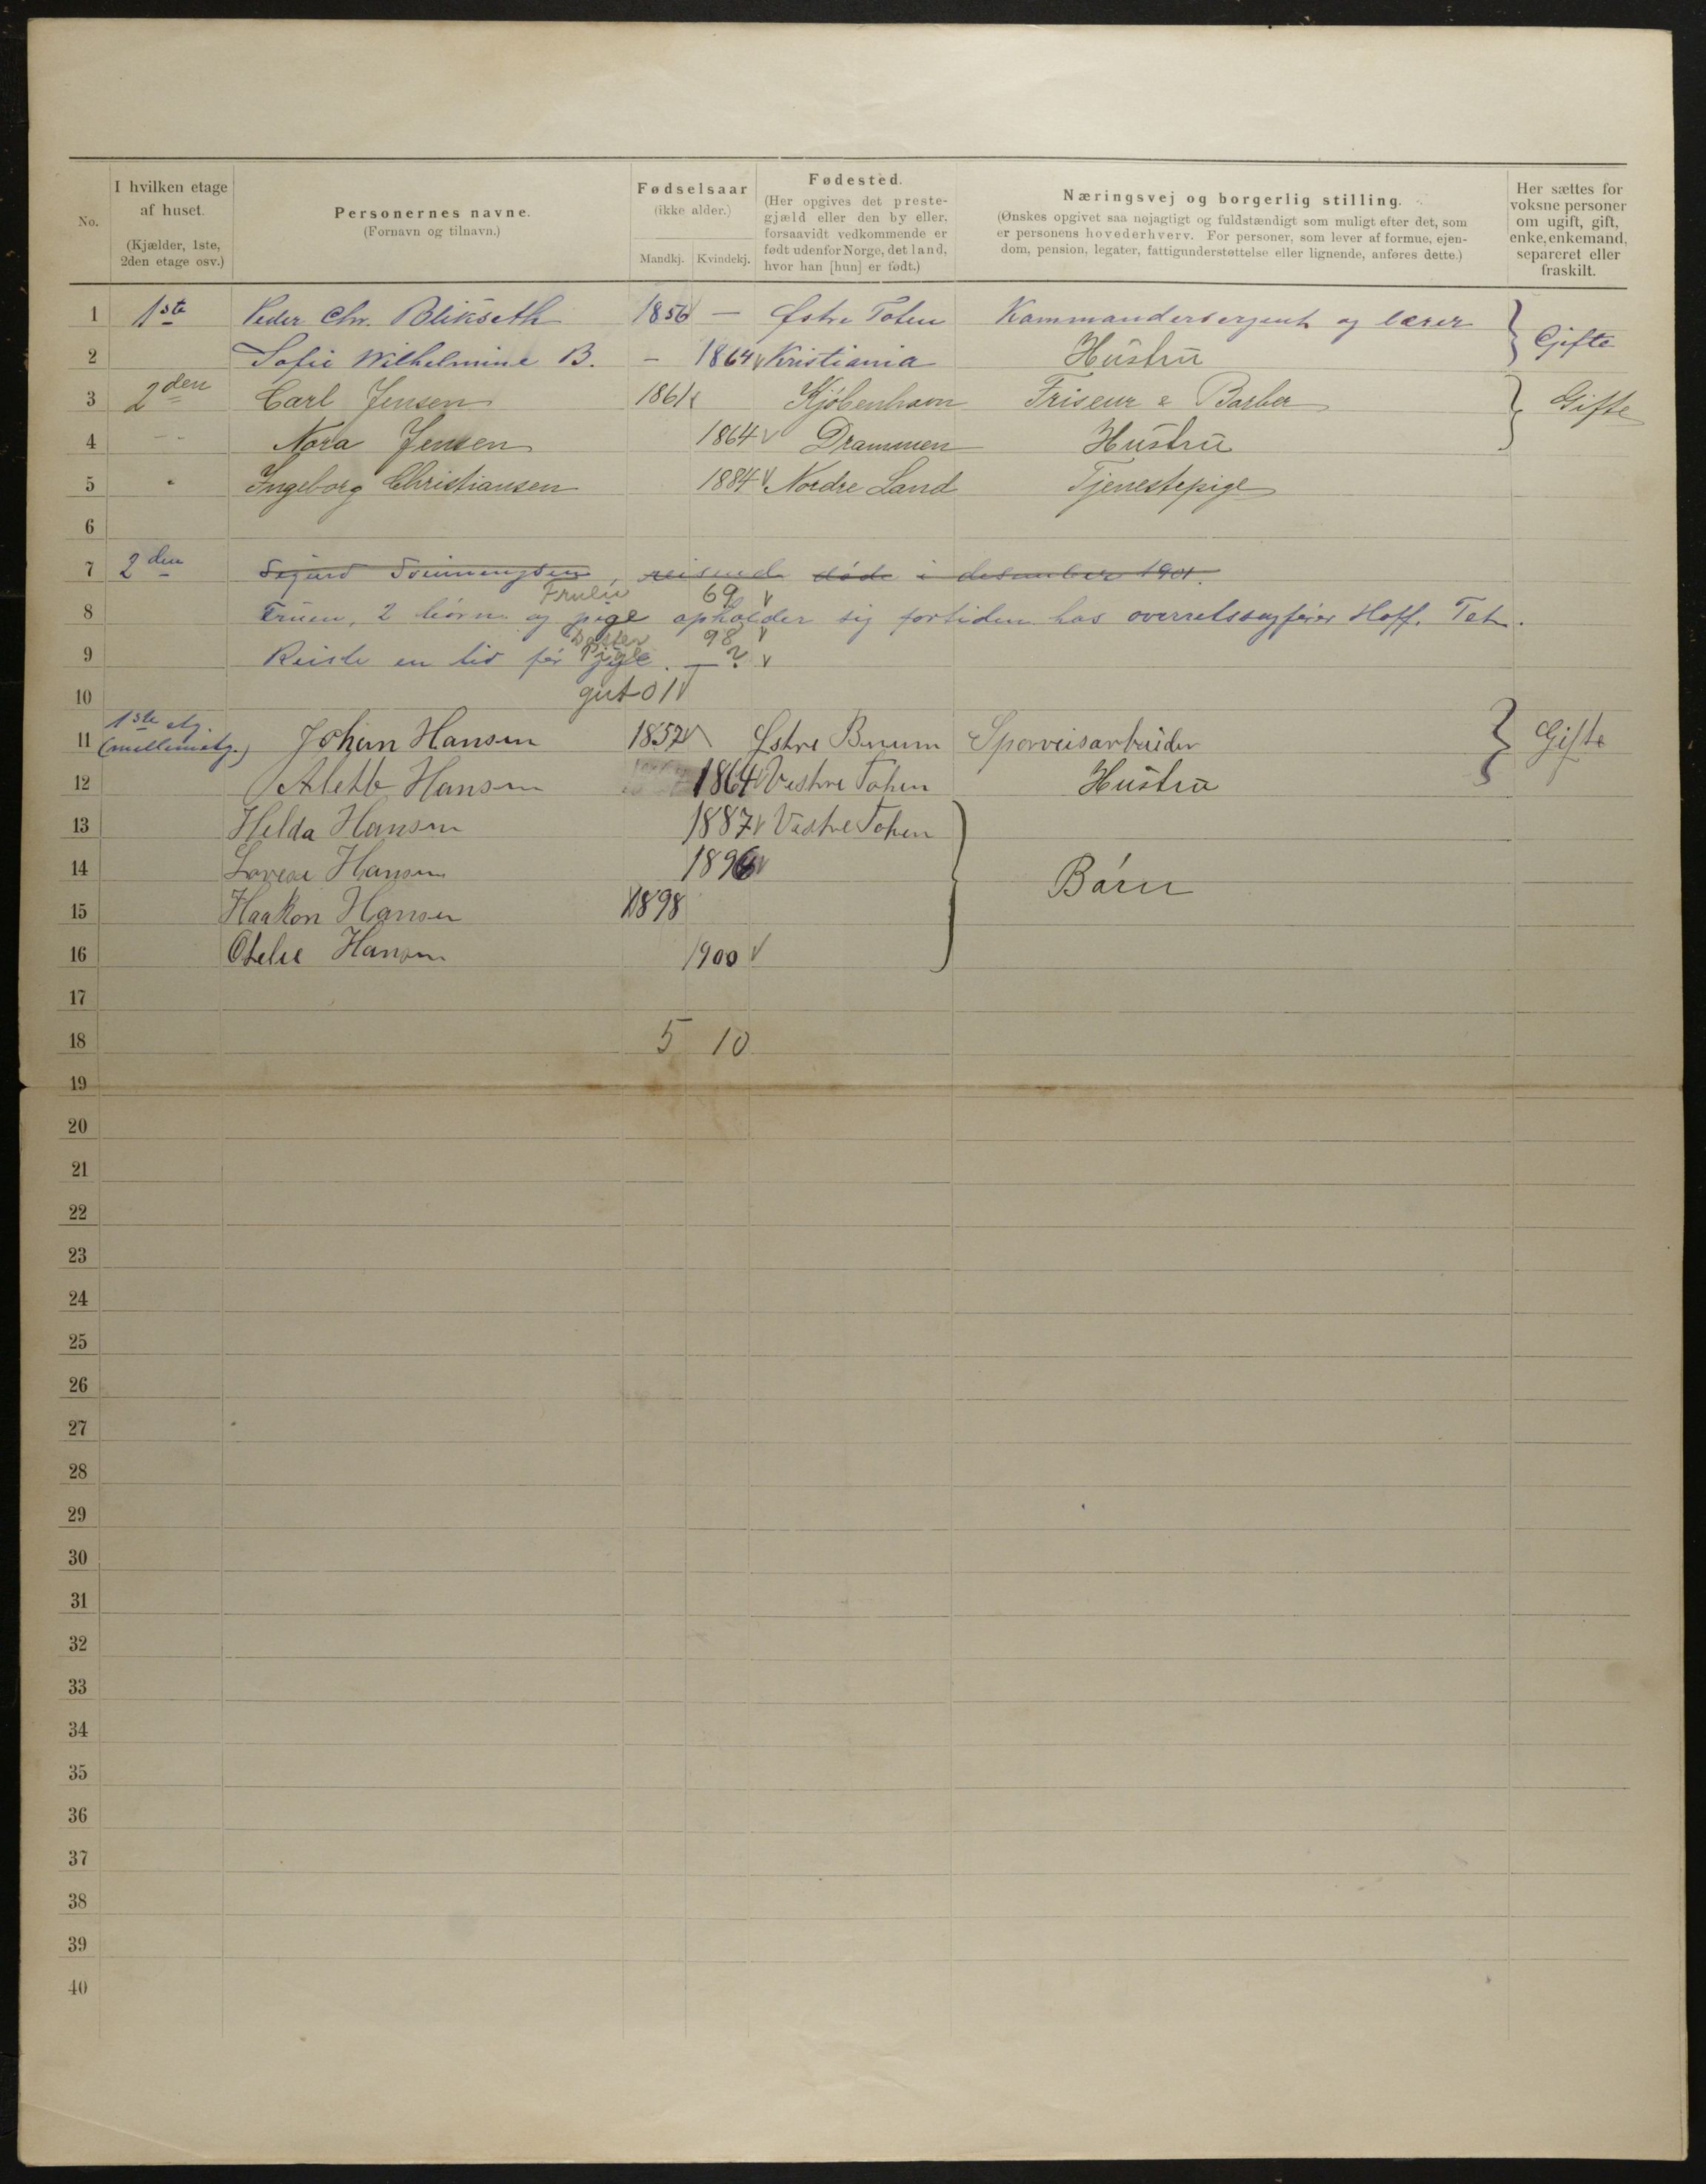 No.
I hvilken etage af huset. (Kjælder, 1ste, 2den etage osv.)
Personernes navne. (Fornavn og tilnavn.)
Fødselsaar (ikke alder.)
Mandkj. Kvindekj.
Fødested. (Her opgives det prestegjæld eller den by eller, forsaavidt vedkommende er født udenfor Norge, det land, hvor han [hun] er født.)
Næringsvej og borgerlig stilling. (Ønskes opgivet saa nøjagtigt og fuldstændigt som muligt efter det, som er personens hovederhverv. For personer, som lever af formue, ejendom, pension, legater, fattigunderstøttelse eller lignende, anføres dette.)
Her sættes for voksne personer om ugift, gift, enke, enkemand, separeret eller fraskilt.
1 1ste Peder Chr. Blikseth 1856 — Østre Toten Kommandersergent og lærer Gifte
2 Sofie Wilhelmine B. — 1864 Kristiania Hustru
3 2den Carl Jensen 1861 Kjøbenhavn Friseur & Barber Gifte
4 - - Nora Jensen 1864 Drammen Hustru
5 " Ingeborg Christiansen 1884 Nordre Land Tjenestepige
6
7 2den Sigurd , reisende døde i desember 1901.
Fruen 69
8 Fruen, 2 børn og pige opholder sig fortiden hos overretssagfører Hoff. Tet.
Datter 98
9 Reiste en tid før jul. Pige — ?
10 gut 01
11 1ste etg. (mellemetg.) Johan Hansen 1857 Østre Sporveisarbeider Gifte
12 Alette Hansen 1864 Vestre Toten Hustru
13 Helda Hansen 1887 Vestre Toten
14 Hansen 1896 Børn
15 Haakon Hansen 1898
16 Otelie Hansen 1900
17
18 5 10
19
20
21
22
23
24
25
26
27
28
29
30
31
32
33
34
35
36
37
38
39
40